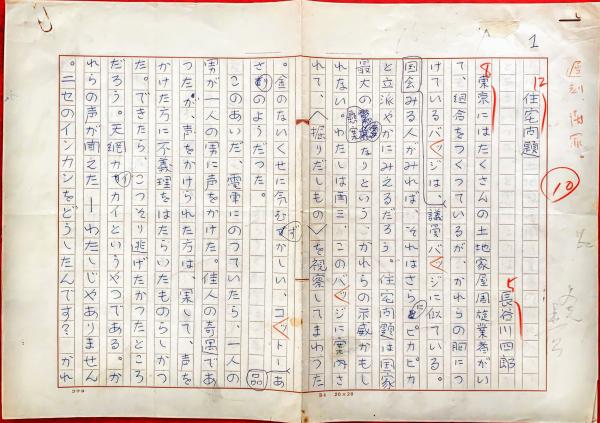 1
住宅問題
長谷川四郎
東京にはたくさんの土地家屋周旋業者がい
て、組合をつくつているが、かれらの胸につ
けているバッジは、議員バッジに似ている。
国会みる人がみれば、それはさらにピカピカ
と立派やかにみえるだろう。住宅問題は国家
最大の なりという、かれらの示威かもし
れない。わたしは両三、このバッジに案内さ
れて、〈掘りだしもの〉を視察してまわつた
。金のないくせに気むずかしい、コットーあ
さりのようだつた。
このあいだ、電車にのつていたら、一人の
男が一人の男に声をかけた。佳人の奇遇であ
つたが、声をかけられた方は、果して、声を
かけた方に不義理をはたらいたものらしかつ
た。できたら、こつそり逃げたかつたところ
だろう。天網カイカイというやつである。か
れらの声が聞えた―わたしじやありません
。ニセのインカンをどうしたんです? かれ
品
12
8
5
10
コクヨ
20×20